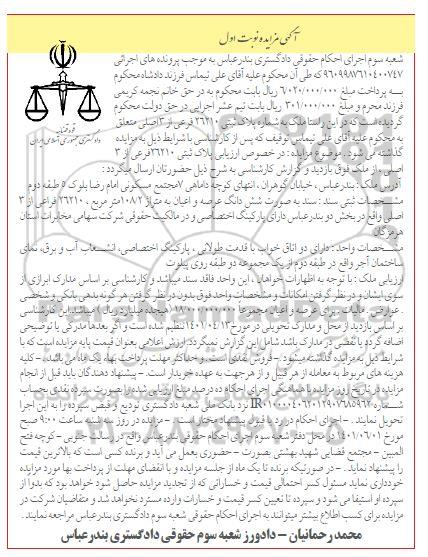 آگهی مزایده نوبت اول
شعبه سوم اجرای احکام حقوقی دادگستری بندرعباس به موجب پرونده های اجرائی
۹۶۰۹۹۸۷۶۱۰۴۰۰۷۴۷ که طی آن محکوم علیه آقای علی تیماس فرزند دادشاه محکوم
به پرداخت مبلغ ۶/۰۲۰/۰۰۰/۰۰۰ ریال بابت محکوم به در حق خانم نجمه کریمی
فرزند محرم و مبلغ ۳۰۱/۰۰۰/۰۰۰ ریال بابت نیم عشر اجرایی در حق دولت محکوم
گردیده است که در این راستا ملک به شماره پلاک ثبتی ۲۶۲۱۰ فرعی از ۳ اصلی متعلق
به محکوم علیه آقای علی تیماس توقیف که پس از کارشناسی با شرایط ذیل به مزایده
گذاشته می شود. موضوع مزایده: در خصوص ارزیابی پلاک ثبتی ۲۶۲۱۰ فرعی از ۳
اصلی، از ملک فوق بازدید و گزارش کارشناسی به شرح ذیل حضورتان ارسال میگردد:
آدرس ملک: بندرعباس، خیابان گوهران، انتهای کوچه داماهی ۷ مجتمع مسکونی امام رضا بلوک ۵ طبقه دوم
مشخصات ثبتی سند: سند به صورت شش دانگ عرصه و اعیان به متراژ ۱۰۸/۲ متر مربع، ۲۶۲۱۰ فرعی از ۳
اصلی واقع در بخش دو بندرعباس دارای پارکینگ اختصاصی و در مالکیت حقوقی شرکت سهامی مخابرات استان
هرمزگان
مشخصات واحد: دارای دو اتاق خواب با قدمت طولانی، پارکینگ اختصاصی، انشعاب آب و برق، نمای
ساختمان آجر واقع در طبقه دوم از یک مجموعه دو طبقه روی پیلوت
ارزیابی ملک: با توجه به اظهارات خواهان، این واحد فاقد سند میباشد و کارشناسی بر اساس مدارک ابرازی از
سوی ایشان و در نظر گرفتن امکانات و مشخصات واحد فوق بدون در نظر گرفتن هر گونه بدهی بانکی و شخصی
، عوارض، مالیات، برای عرصه و اعیان مجموعا ۱۷/۰۰۰/۰۰۰/۰۰۰ (هجده میلیارد ریال) میباشد این کارشناسی
بر اساس بازدید از محل و مدارک تحویلی در مورخ ۱۴۰۱/۰۴/۱۳ تنظیم شده است و اگر بعدها مدرکی یا توضیحی
اضافه گردد یا نقضی در مدارک باشد شامل این گزارش نمیگردد. ارزش اعلامی بعنوان قیمت پایه مزایده است که با
شرایط ذیل به مزایده گذاشته میشود - فروش نقدی است و حداکثر مهلت پرداخت بهاء یک ماه می باشد - کلیه
هزینه های مربوط به معامله از هر قبیل و از هر جهت به عهده خریدار است. - پیشنهاد دهندگان باید قبل از انجام
مزایده در تاریخ روز مزایده با هماهنگی اجرای احکام ده درصد مبلغ ارزیابی شده را بصورت سپرده نقدی بحساب
شماره IR نزد بانک ملی شعبه دادگستری تودیع و قبض سپرده را به این اجرا
تحویل نمایند. - اجرای احکام در رد یا قبول پیشنهاد مختار است. - مزایده در روز سه شنبه ساعت ۹:۰۰ صبح
مورخ ۱۴۰۱/۰۶/۰۱ در محل دفتر شعبه سوم اجرای احکام حقوقی بندرعباس واقع در رسالت جنوبی - کوچه فتح
المبین - مجتمع قضایی شهید بهشتی بصورت - حضوری بعمل می آید و برنده کسی است که بالاترین قیمت
را پیشنهاد نماید. - در صورتیکه برنده تا یک ماه از جلسه مزایده و با انقضای مهلت از پرداخت بها مورد مزایده
خودداری نماید مسئول کسر احتمالی قیمت و خساراتی که از تجدید مزایده حاصل شود خواهد بود که بدوا از
سپرده او استیفا می شود و سپرده تا تعیین کسر قیمت و خسارات وارده مسترد نخواهد شد و متقاضیان شرکت در
مزایده برای کسب اطلاع بیشتر میتوانند به اجرای احکام حقوقی شعبه سوم دادگستری بندرعباس مراجعه نمایند.
محمد رحمانیان - دادورز شعبه سوم حقوقی دادگستری بندرعباس
قوه قضاییه
دادگستری جمهوری اسلامی ایران